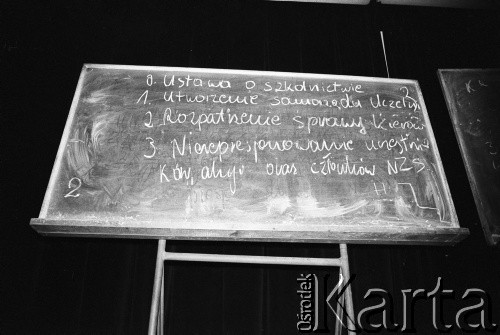 0. Ustawa o szkolnictwie
2
1. Utworzenie samorządu Uczelni
2. Rozpatrzenie sprawy
3. Nierepresjonowanie uczestników
akcji oraz członków NZS
2
Ośrodek
Karta